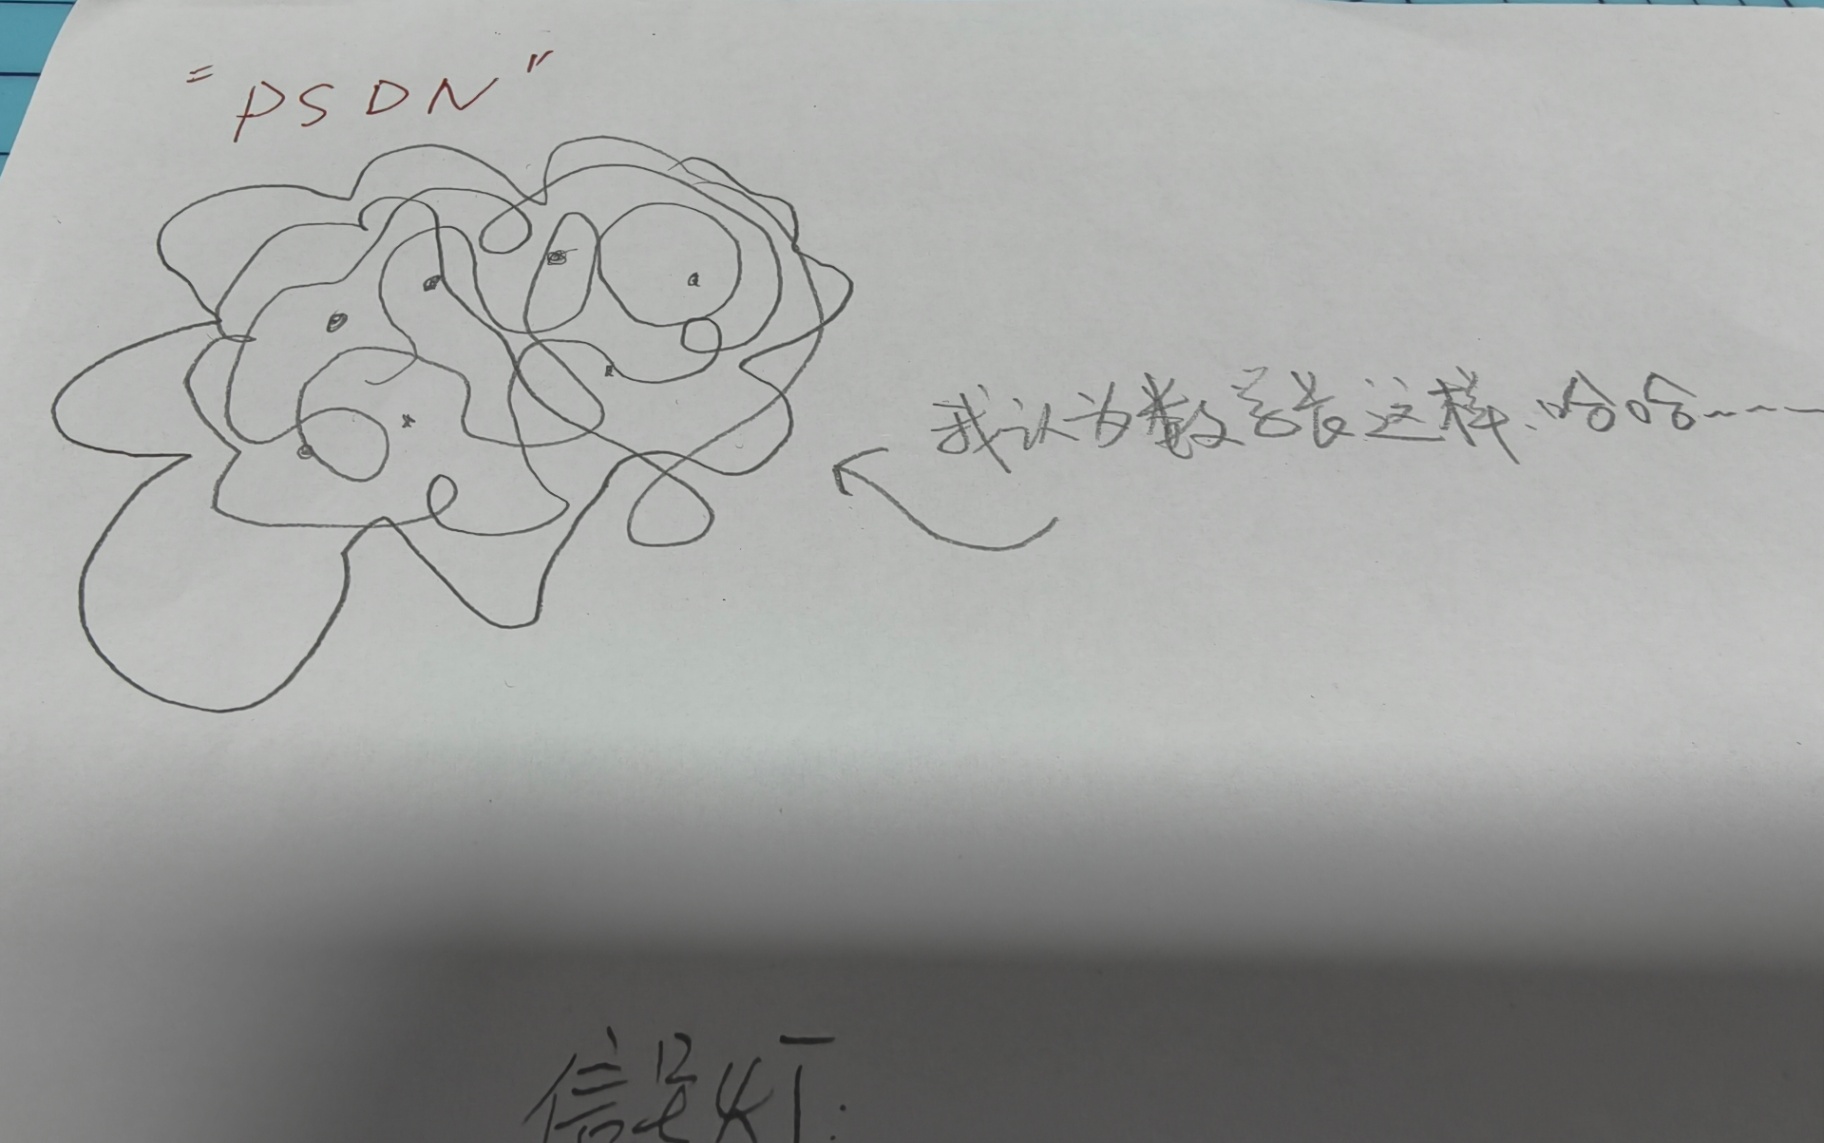 "PSDN"
我认为数学长这样、哈哈----
信号灯.